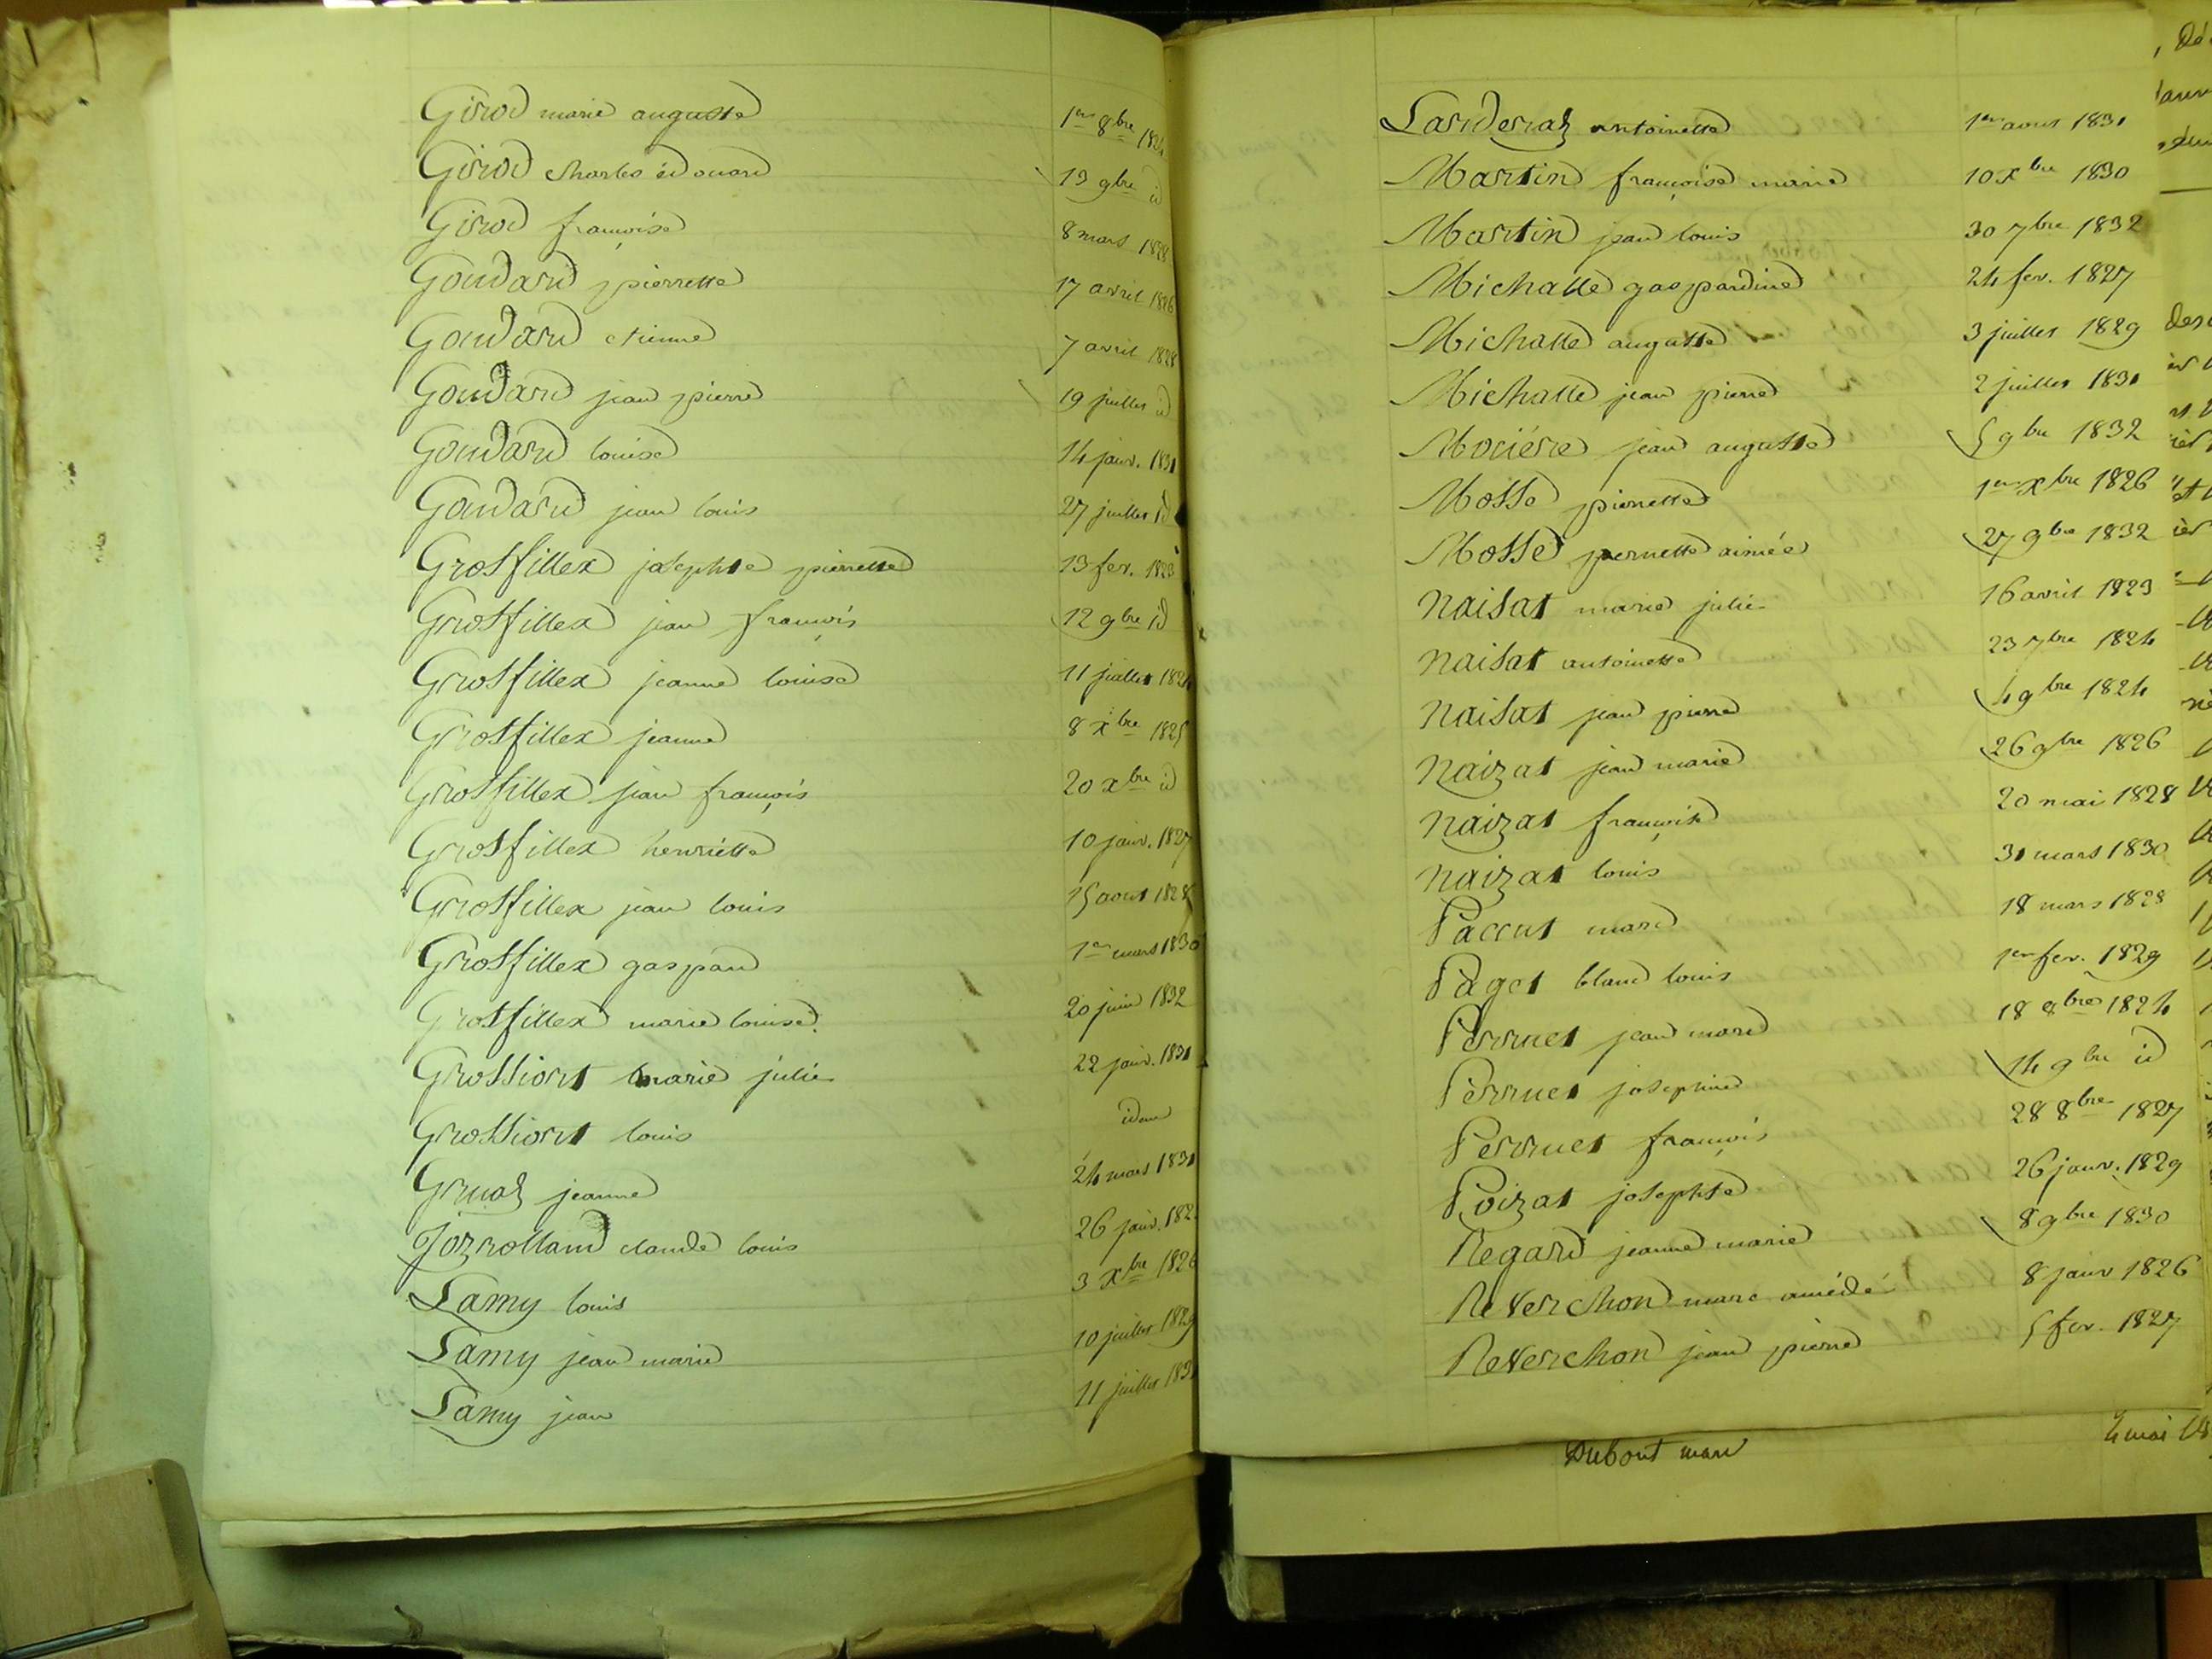 Girod marie auguste 1er 8bre 1824
Girod charles édouard 13 9bre id
Girod françoise 8 mars 1828
Goudard pierrette 17 avril 1826
Goudard etienne 7 avril 1828
Goudard jean pierre 19 juillet id
Goudard louise 14 janv. 1831
Goudard jean louis 27 juillet id
Grosfillex josephte pierrette 13 fev. 1823
Grosfillex jean françois 12 9bre id
Grosfillex jeanne louise 11 juillet 1824
Grosfillex jeanne 8 xbre 1825
Grosfillex jean françois 20 xbre id
Grosfillex henriette 10 janv. 1827
Grosfillex jean louis 15 aout 1828
Grosfillex gaspard 1er mars 1830
Grosfillex marie louise. 20 juin 1832
Grossiort marie julie 22 janv. 1831
Grossiort louis idem
Gruaz jeanne 24 mars 1831
Jozrolland claude louis 26 janv.
Lamy louis 3 xbre 1826
Lamy jean marie 10 juillet 1829
Lamy jean 11 juillet 1831
Larderaz antoinette 1er aout 1831
Martin françoise marie 10 xbre 1830
Martin jean louis 30 7bre 1832
Michalle gaspardine 24 fev. 1827
Michalle auguste 3 juillet 1829
Michalle jean pierre 2 juillet 1831
Mociére jean auguste 5 9bre 1832
Mosse pierrette 1er xbre 1826
Mosse pernette aimée 27 9bre 1832
Naisat marie julie 16 avril 1823
Naisat antoinette 23 7bre 1824
Naisat jean pierre 4 9bre 1824
Naizat jean marie 26 9bre 1826
Naizat françoise 20 mai 1828
Naizat louis 31 mars 1830
Paccut marie 18 mars 1828
Paget blanc louis 1er fev. 1829
Perruet jean marie 18 8bre 1824
Perruet josephine 14 9bre id
Perruet françois 28 8bre 1827
Poizat josephte 26 janv. 1829
Regard jeanne marie 8 9bre 1830
Reverchon marc amédé 8 janv 1826
Reverchon jean pierre 5 fev. 1827
Dubout marie 4 mai